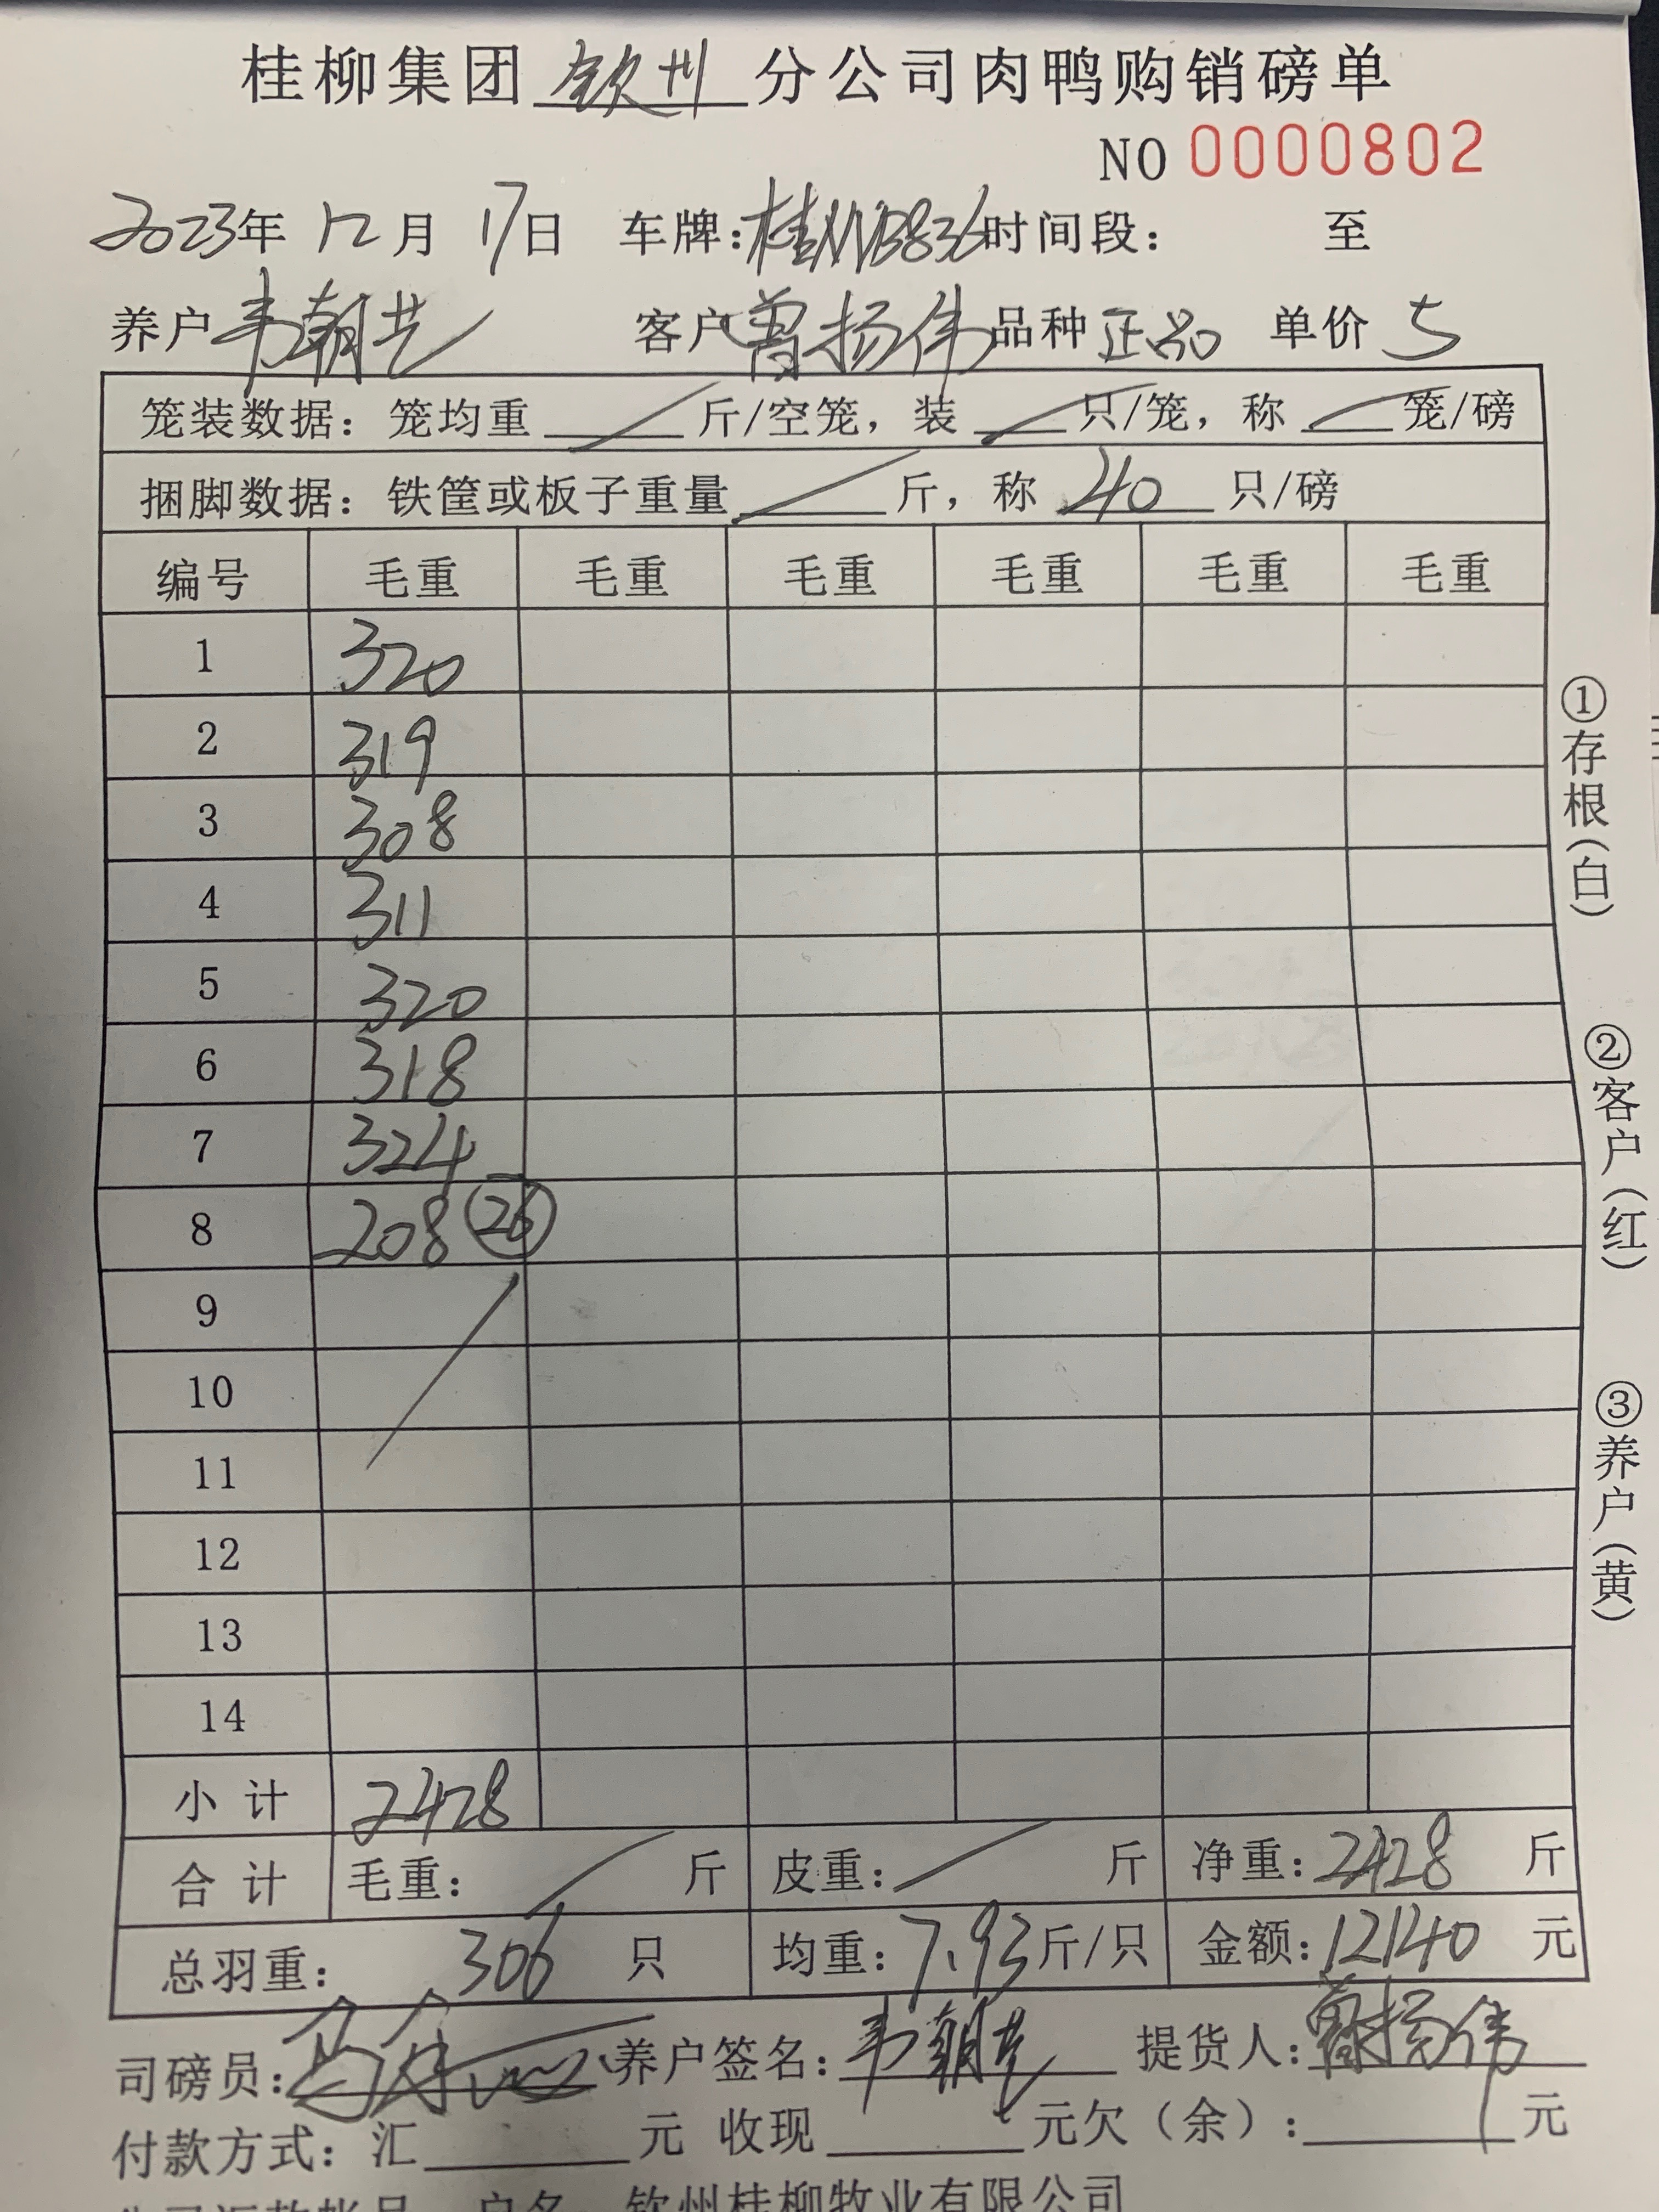 桂柳集团 钦州 分公司肉鸭购销磅单
NO 0000802
2023年 12月 17日 车牌: 时间段: 至
养户 韦朝艺 客户 曾扬伟 品种 正品 单价 5
笼装数据: 笼均重 斤/空笼, 装 只/笼, 称 笼/磅
捆脚数据: 铁筐或板子重量 斤, 称 40 只/磅
编号 毛重 毛重 毛重 毛重 毛重 毛重
1 320
2 319
3 308
4 311
5 320
6 318
7 324
8 208 26
9
10
11
12
13
14
小计 2428
合计 毛重: 斤 皮重: 斤 净重: 2428 斤
总羽重: 306 只 均重: 7.93 斤/只 金额: 12140 元
司磅员: 养户签名: 韦朝艺 提货人: 曾扬伟
付款方式: 汇 元 收现 元欠(余): 元
公司汇款帐号 户名 钦州桂柳牧业有限公司
①存根(白)
②客户(红)
③养户(黄)